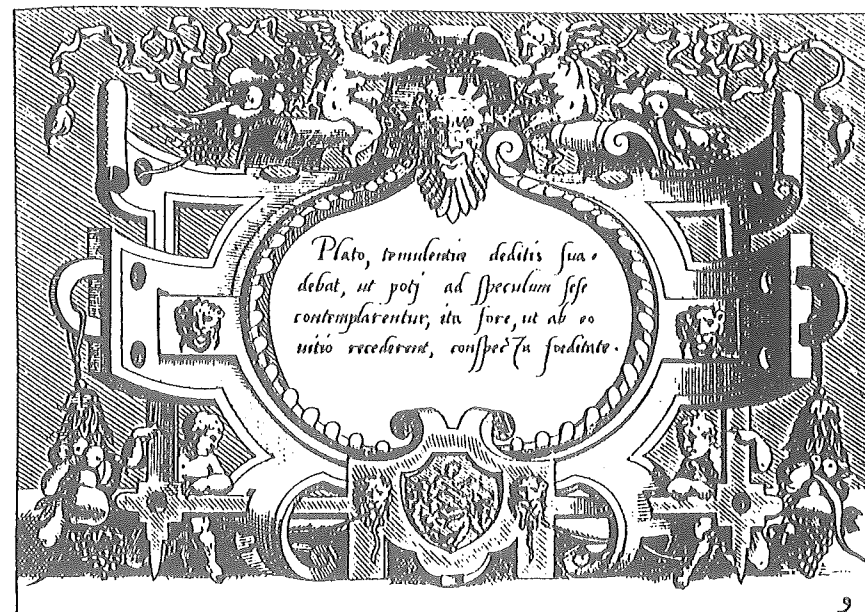 Plato, temulentiæ deditis sua-
debat, ut potj ad speculum sese
contemplarentur, ita fore, ut ab eo
uitio recederent, conspecta foeditate.
9